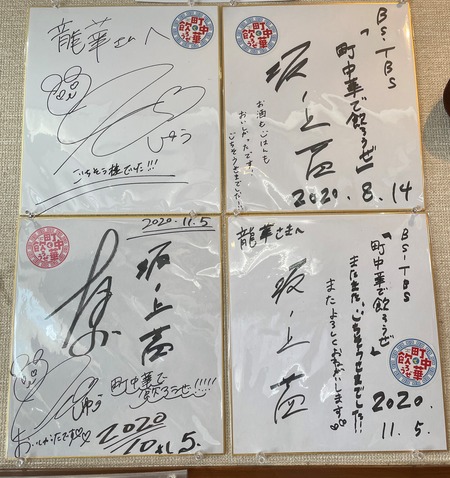 龍華さんへ
町中華で飲ろうぜ
しゅう
ごちそう様でした!!!
BS-TBS
「町中華で飲ろうぜ」
坂ノ上茜
お酒もごはんも
おいしかったです!
ごちそうさまでした!!
2020.8.14
町中華で飲ろうぜ
2020.11.5
坂ノ上茜
町中華で
飲ろうぜ!!!!!
しゅう
おいしかったです
2020
5.
町中華で飲ろうぜ
龍華さまへ
BS-TBS
「町中華で飲ろうぜ」
またまた、ごちそうさまでした!!
またよろしくおねがいします
坂ノ上茜
2020.
11.5.
町中華で飲ろうぜ